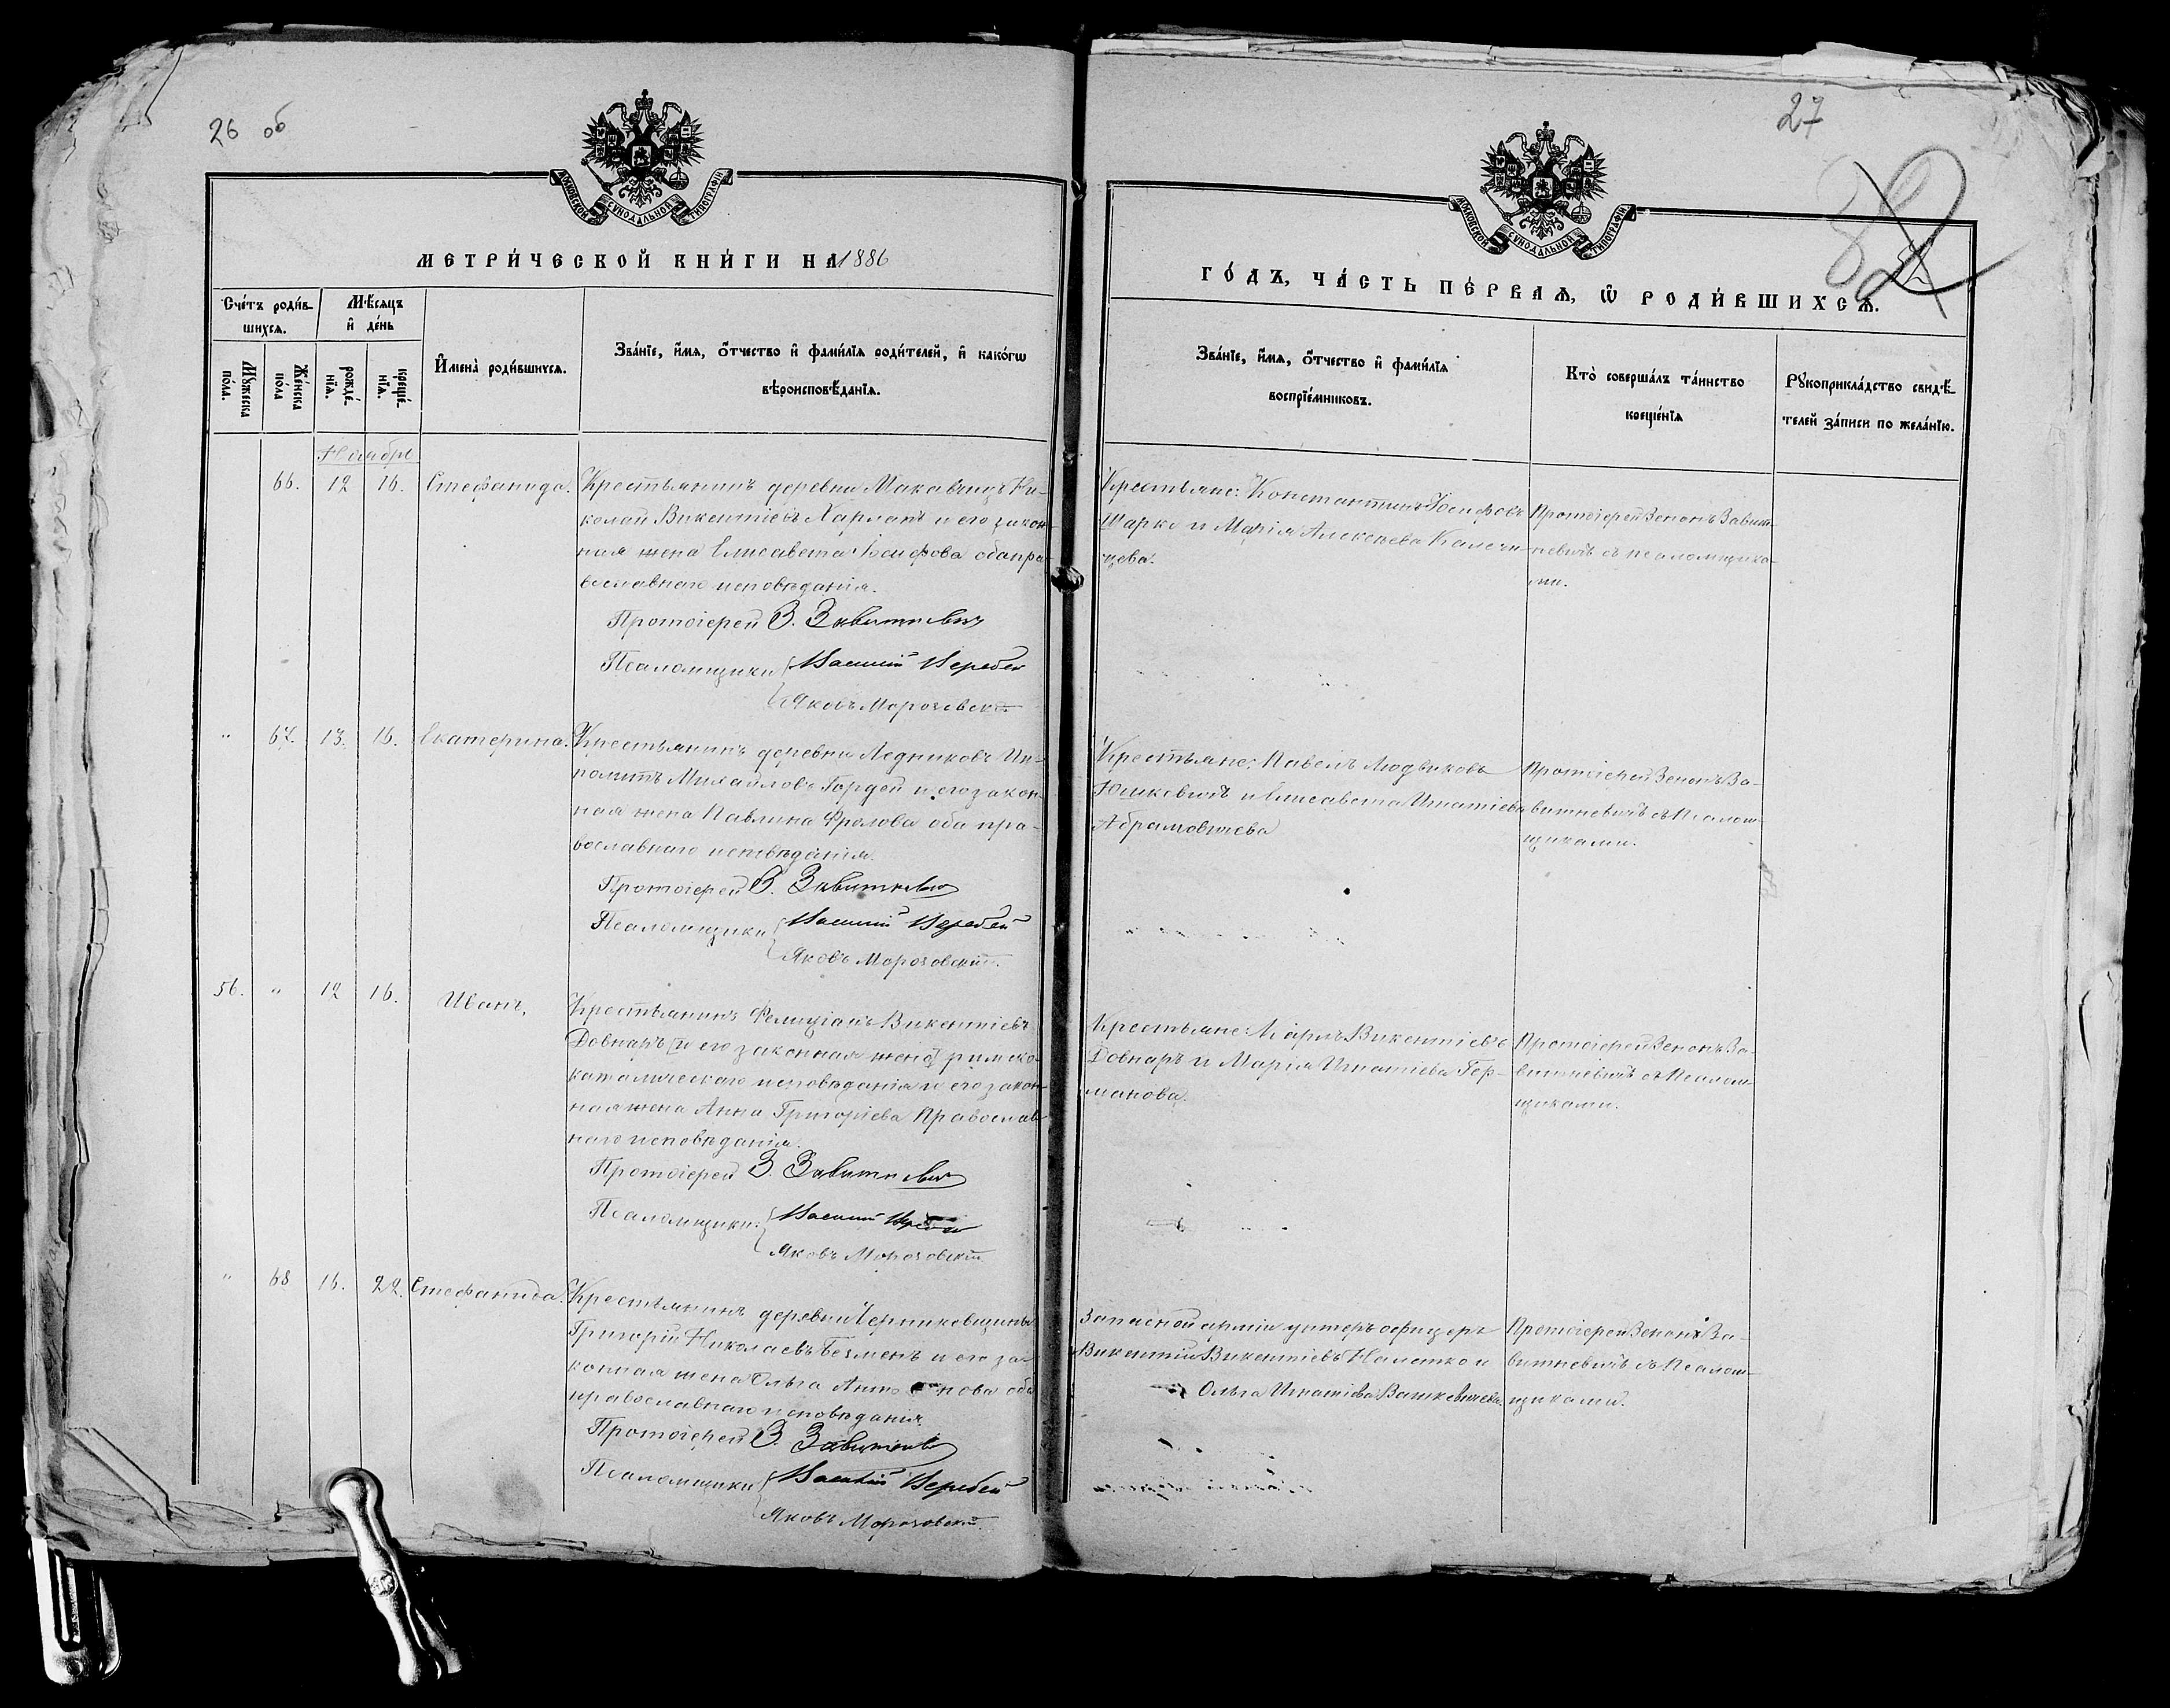 26 об
МОСКОВСКОЙ СѴНОДАЛЬНОЙ ТИПОГРАФІИ
МЕТРИ́ЧЕСКОЙ КНИ́ГИ НА 1886
Сче́тъ роди́в-
шихсѧ.
Мѣ́сѧцъ
и҆ де́нь
И҆мена̀ роди́вшихсѧ.
Зва́нїе, и҆́мѧ, ѻ҆́тчество и҆ фами́лїѧ роди́телей, и҆ како́гѡ
вѣроисповѣ́данїѧ.
Мꙋ́жеска
по́ла.
Же́нска
по́ла
рожде́-
нїѧ.
креще́-
нїѧ.
Ноябрь
66. 12 16. Стефанида. Крестьянинъ деревни Ни-
колай Викентіевъ Харлапъ и его закон-
ная жена Елисавета Іосифова оба пра-
вославнаго исповѣданія.
Протоіерей З. Завитневичъ
Псаломщики Василій Веребей
Яковъ Морозовскій
" 67. 13. 16. Екатерина. Крестьянинъ деревни Ледниковъ Ип-
политъ Михайловъ Гордей и его закон-
ная жена Павлина Фролова оба пра-
вославнаго исповѣданія.
Протоіерей З. Завитневичъ
Псаломщики Василій Веребей
Яковъ Морозовскій.
56. " 12 16. Иванъ, Крестьянинъ Фелиціанъ Викентіевъ
Довнаръ [и его законная жена] римско-
католическаго исповѣданія и его закон-
ная жена Анна Григоріева Православ-
наго исповѣданія.
Протоіерей З. Завитневичъ
Псаломщики: Василій Веребей
Яковъ Морозовскій
" 68 16. 22. Стефанида. Крестьянинъ деревни Черниковщины
Григорій Николаевъ Безменъ и его за-
конная жена Ольга Антонова оба
православнаго исповѣданія.
Протоіерей З. Завитневичъ
Псаломщики Василій Веребей
Яковъ Морозовскій.
27
МОСКОВСКОЙ СѴНОДАЛЬНОЙ ТИПОГРАФІИ
ГО́ДЪ, ЧА́СТЬ ПЕ́РВАѦ, Ѡ҆ РОДИ́ВШИХСѦ.
Зва́нїе, и҆́мѧ, ѻ҆́тчество и҆ фами́лїѧ
воспрїе́мниковъ.
Кто̀ соверша́лъ та́инство
креще́нїѧ
Рꙋкоприкла́дство свидѣ́-
телей за́писи по жела́нїю.
Крестьяне: Константинъ Іосифовъ
Шарко и Марія Алексѣева Калечи-
цева.
Протоіерей Зенонъ Завит-
невичъ съ псаломщика-
ми.
Крестьяне: Павелъ Людвиковъ
Юшкевичъ и Елисавета Игнатіева
Абрамовичева
Протоіерей Зенонъ За-
витневичъ съ Псалом-
щиками.
Крестьяне: Карлъ Викентіевъ
Довнаръ и Марія Игнатіева Гер-
манова.
Протоіерей Зенонъ За-
витневичъ съ Псалом-
щиками.
Запасной арміи унтеръ офицеръ
Викентій Викентіевъ и
Ольга Игнатіева Вашкевичева.
Протоіерей Зенонъ За-
витневичъ съ Псалом-
щиками.